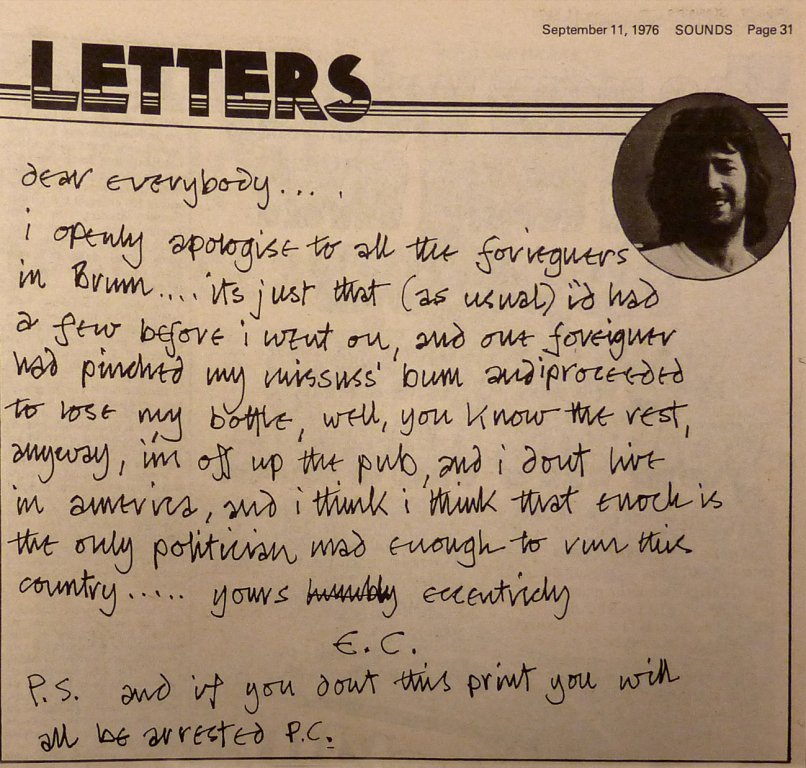 September 11, 1976 SOUNDS Page 31
LETTERS
dear everybody... .
i openly apologise to all the forieguers
in Brum.... its just that (as usual) i'd had
a few before i went on, and one foreigner
had pinched my missuss' bum and i proceeded
to lose my bottle, well, you know the rest,
anyway, i'm off up the pub, and i dont live
in america, and i think i think that enoch is
the only politician mad enough to run this
country..... yours humbly eccentricly
E.C.
P.S. and if you dont this print you will
all be arrested P.C.